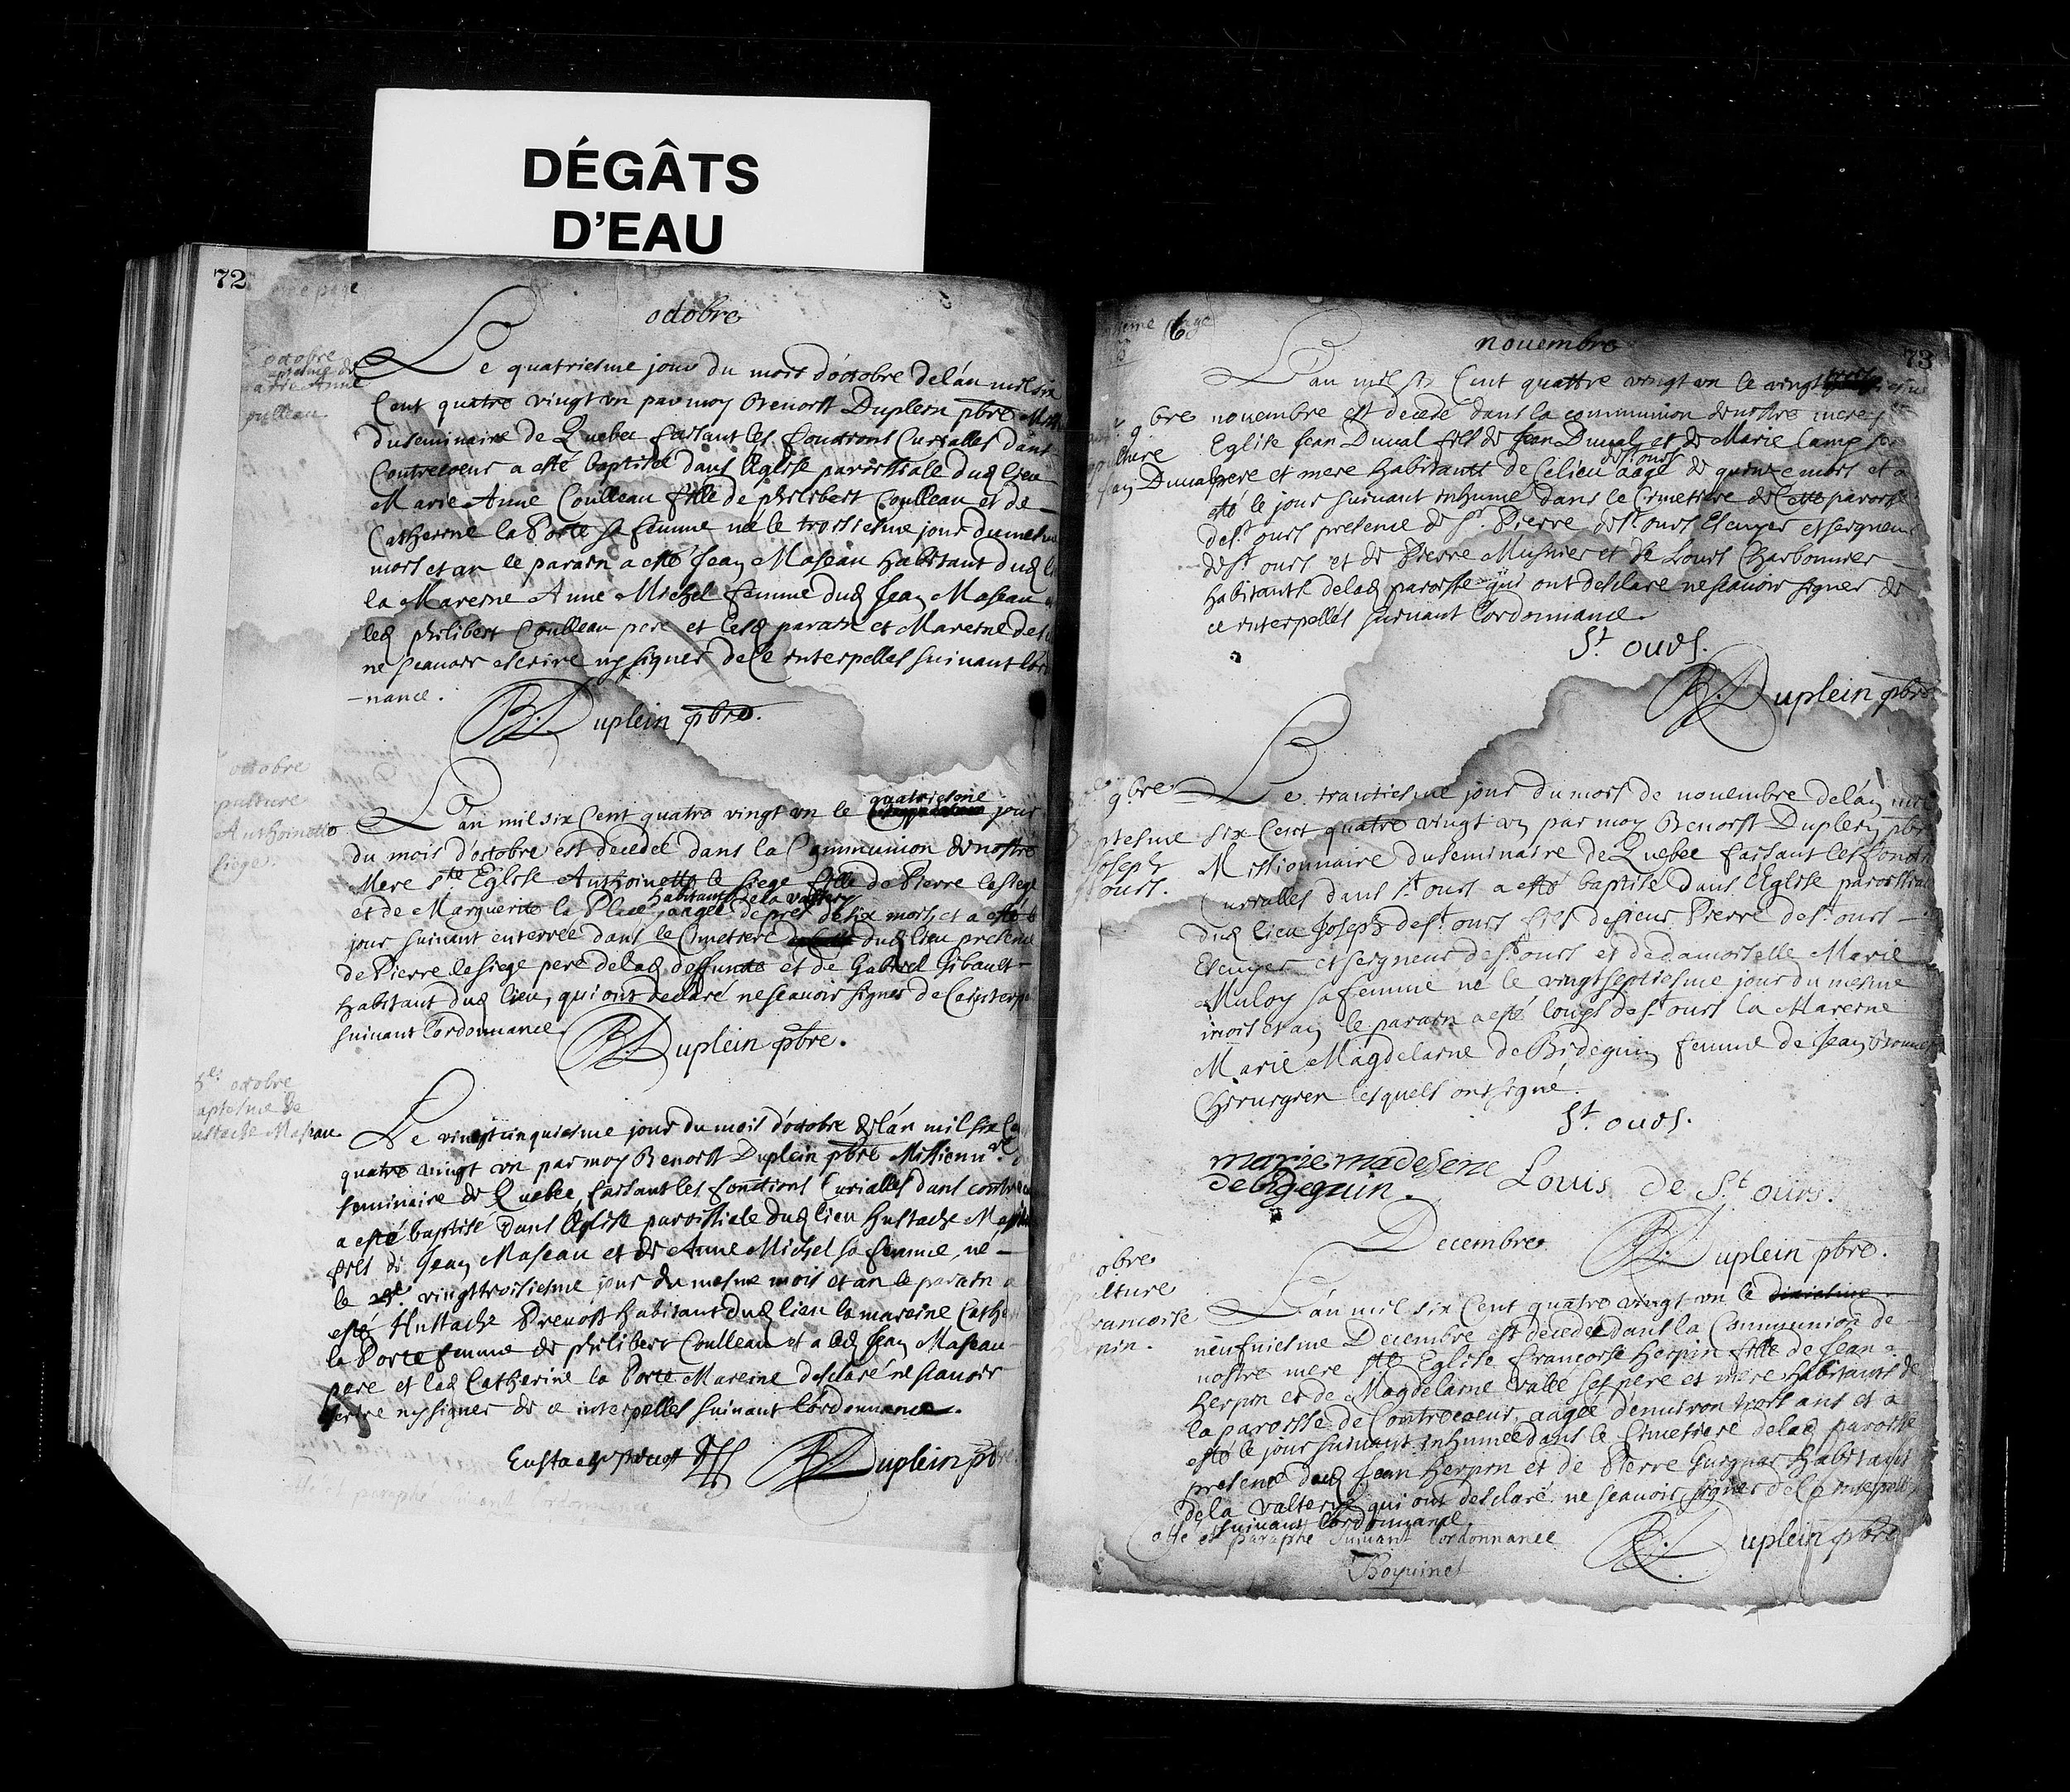 DÉGÂTS
D'EAU
72
page
octobre
octobre
Marie Anne
oulleau
Le quatriesme jour du mois d'octobre de l'an mil six
Cent quatre vingt un par moy Benoist Duplein pbre
du seminaire de Quebec faisant les fonctions Curialles dans
Contrecoeur a esté baptisée dans l'Eglise paroissiale dud lieu
Marie Anne Coulleau fille de philibert Coulleau et de
Catherine la Porte sa femme née le troisiesme jour du mesme
mois et an le parain a esté Jean Maseau habitant dud
la Mareine Anne Michel femme dud Jean Maseau
led philibert Coulleau pere et lesd parain et Mareine
ne scauoir escrire ny signer de Ce interpellés suiuant
-nance.
B. Duplein pbre.
octobre
pulture
Anthoinette
siege
L'an mil six Cent quatre vingt un le quatriesme jour
du mois d'octobre est decedée dans la Communion de nostre
Mere ste Eglise Anthoinette le siege fille de Pierre lesiege
et de Marguerite la Place, habitants de la valterye aagée de prés de six mois, et a esté le
jour suiuant enterrée dans le Cimetiere dud lieu presence
de Pierre lesiege pere de lad deffunte et de Gabriel Gibault
habitant dud lieu, qui ont declaré ne scauoir signer de Ce
suiuant l'ordonnance
B. Duplein pbre.
octobre
aptesme de
ustache Maseau
Le vingt cinquiesme jour du mois d'octobre de l'an mil six
quatre vingt un par moy Benoist Duplein pbre Missionnre
seminaire de Quebec, faisant les fonctions Curialles dans
a esté baptisé dans l'Eglise paroissiale dud lieu hustache
fils de Jean Maseau et de Anne Michel sa femme, né
le vingt troisiesme jour du mesme mois et an le parain a
esté hustache Preuost habitant dud lieu la mareine
la Porte femme de philibert Coulleau et a led Jean Maseau
pere et lad Catherine la Porte Mareine desclaré ne scauoir
escrire ny signer de ce interpellés suiuant l'ordonnance.
Eustache preuost B. Duplein pbre
et paraphé suiuant l'ordonnance
6
73
novembre
L'an mil six Cent quattre vingt un le vingt
9bre novembre est decedé dans la communion de nostre mere
Eglise Jean Duual fils de Jean Duual, et de Marie
Jean Duual pere et mere habitants de Ce lieu de st ours aagé de quinze mois et a
esté le jour suiuant inhumé dans le Cimetiere de Cette paroisse
de st ours presence de sr. Pierre de st ours Escuyer et seigneur
de st ours et de Pierre Musnier et de Louis Charbonnier
habitants de lad paroisse qui ont desclaré ne scauoir signer de
ce interpellés suiuant l'ordonnance.
St ours.
B. Duplein pbre
9bre Le trantiesme jour du mois de novembre de l'an
ptesme six Cent quatre vingt un par moy Benoist Duplein pbre
Joseph Missionnaire du seminaire de Quebec faisant les
ours. Curialles dans st ours a esté baptisé dans l'Eglise paroissiale
dud lieu Joseph de st ours fils de sieur Pierre de st ours
Escuyer et seigneur de st ours et de damoiselle Marie
Muloy sa femme né le vingt septiesme jour du mesme
mois et an le parain a esté louys de st ours la Mareine
Marie Magdelaine de Bideguin femme de Jean
Chirurgien lesquels ont signé.
St ours.
marie madelene
de bideguin. Louis de St ours.
Decembre. B. Duplein pbre.
L'an mil six Cent quatre vingt un le
neufuiesme Decembre est decedée dans la Communion de
nostre mere ste Eglise françoise herpin fille de Jean
herpin et de Magdelaine Valée ses pere et mere habitants de
la paroisse de Contrecoeur, aagée d'enuiron trois ans et a
esté le jour suiuant inhumée dans le Cimetiere de lad paroisse
presence dud Jean herpin et de Pierre habitant
de la valterye qui ont desclaré ne scauoir signer de Ce
suiuant l'ordonnance.
et paraphé suiuant l'ordonnance B. Duplein pbre